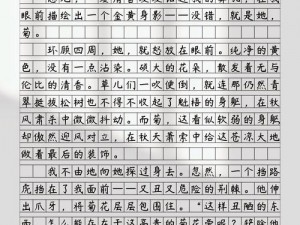 眼前描绘出一个金黄身影——没错，就是她，
菊。
环顾四周，她，就怒放在眼前。纯净的黄
色，没有一点沾染。硕大的花朵，散发着无与
伦比的清香。草儿们一吹便倒，就连那仍然青
翠挺拔松树也不得不收起了魁梧的身躯，在秋
风肃杀中微微抖动。而菊，这看似弱小的身躯
却傲然迎风对立，在秋天萧索中给这苍凉大地
做着最后的装饰。
我不由地向她探过身去。忽然，一个拦路
虎挡在了我面前——又丑又危险的荆棘。他伸
出爪牙，将菊花层层包围住。“这样丑陋的东